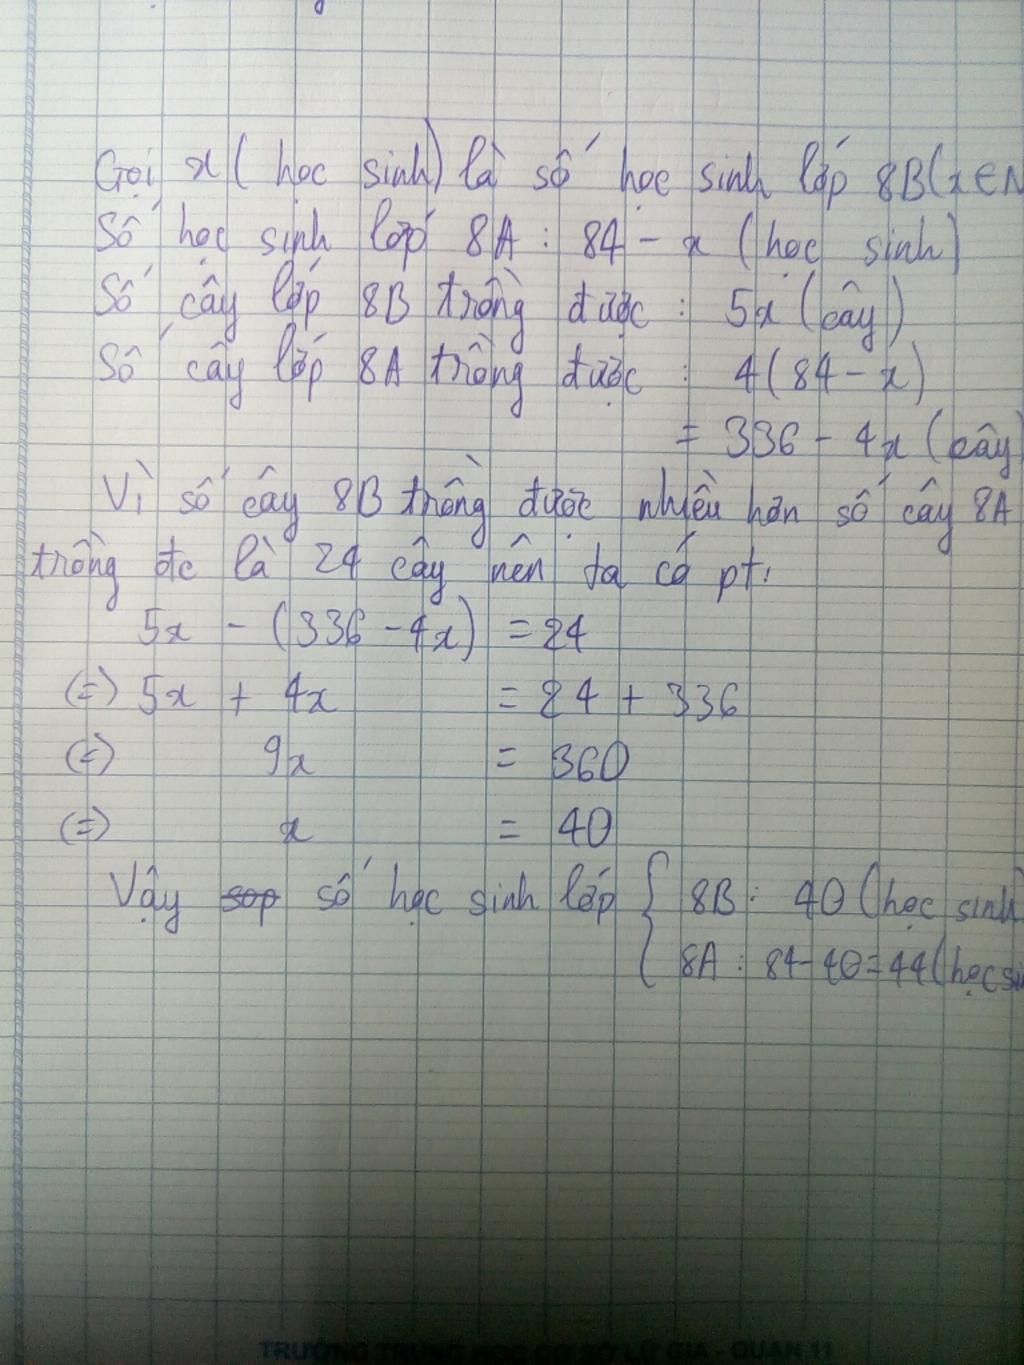 Gọi x ( học sinh) là số học sinh lớp 8B(x ∈ N
Số học sinh lớp 8A : 84 - x (học sinh)
Số cây lớp 8B trồng được : 5x (cây)
Số cây lớp 8A trồng được : 4(84-x)
= 336 - 4x (cây)
Vì số cây 8B trồng được nhiều hơn số cây 8A
trồng đc là 24 cây nên ta có pt:
5x - (336 - 4x) = 24
(=) 5x + 4x = 24 + 336
(=) 9x = 360
(=) x = 40
Vậy số học sinh lớp { 8B : 40 (học sinh)
8A : 84-40=44 (học si
TRƯỜNG TRUNG HỌC CƠ SỞ LỮ GIA - QUẬN 11